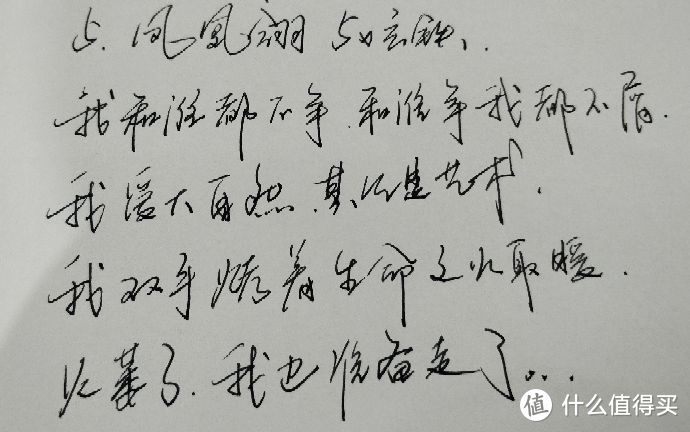 凤凰翎
我和谁都不争.和谁争我都不屑.
我爱大自然.其次是艺术.
我双手烤着生命之火取暖.
火萎了.我也准备走了...
值 什么值得买